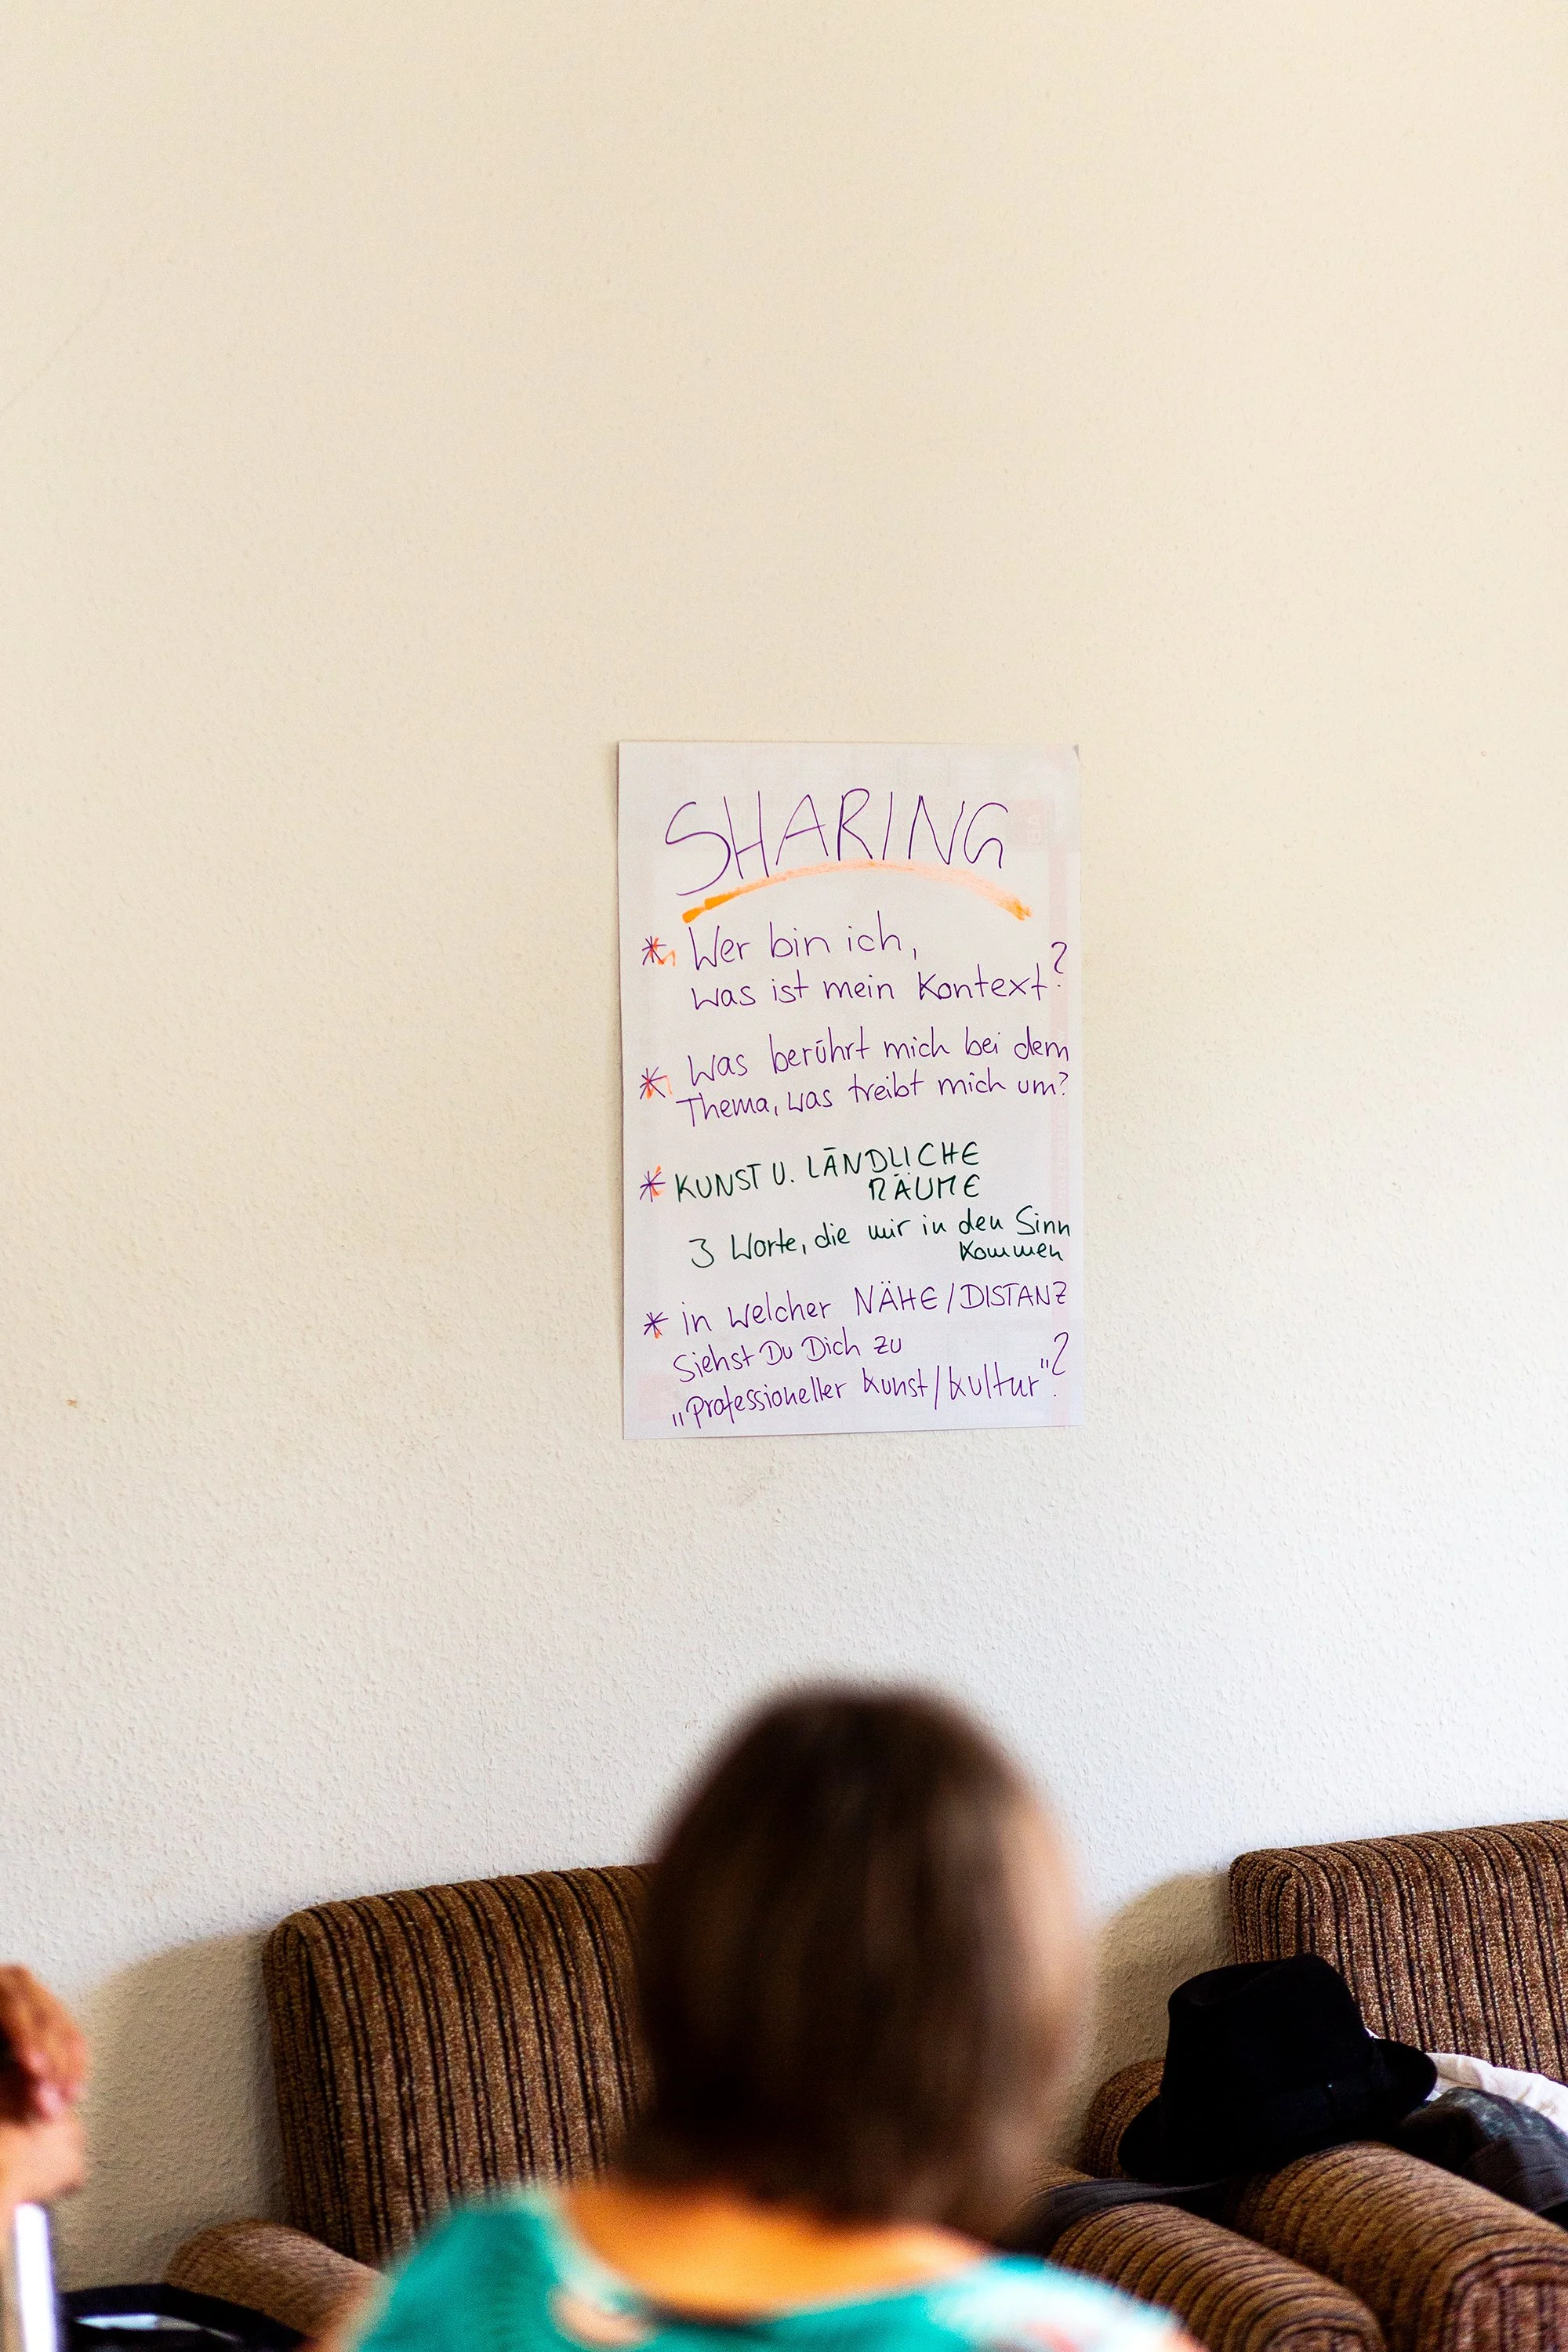 SHARING
* Wer bin ich,
was ist mein Kontext?
* Was berührt mich bei dem
Thema, was treibt mich um?
* KUNST U. LÄNDLICHE
RÄUME
3 Worte, die mir in den Sinn
kommen
* in welcher NÄHE/DISTANZ
siehst Du Dich zu
„Professioneller Kunst/Kultur"?